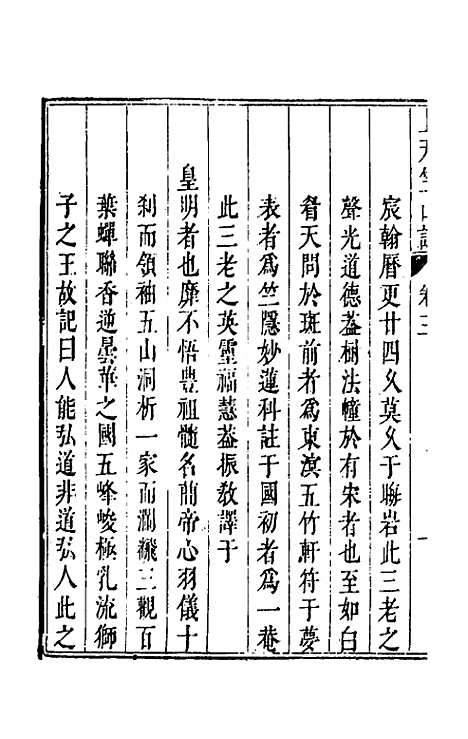 上天竺山誌 卷三 一
宸翰曆更廿四久莫久于聯岩此三老之
聲光道德葢樹法幢於有宋者也至如白
眘天問於斑前者為東溟五竹軒符于夢
表者為竺隱妙蓮科註于國初者為一菴
此三老之英靈福慧葢振敎譯于
皇明者也靡不悟豊祖髓名蕳帝心羽儀十
刹而領袖五山洞析一家而瀾飜三觀百
葉蟬聯香逆曇華之國五峰峻極乳流獅
子之王故記曰人能弘道非道弘人此之